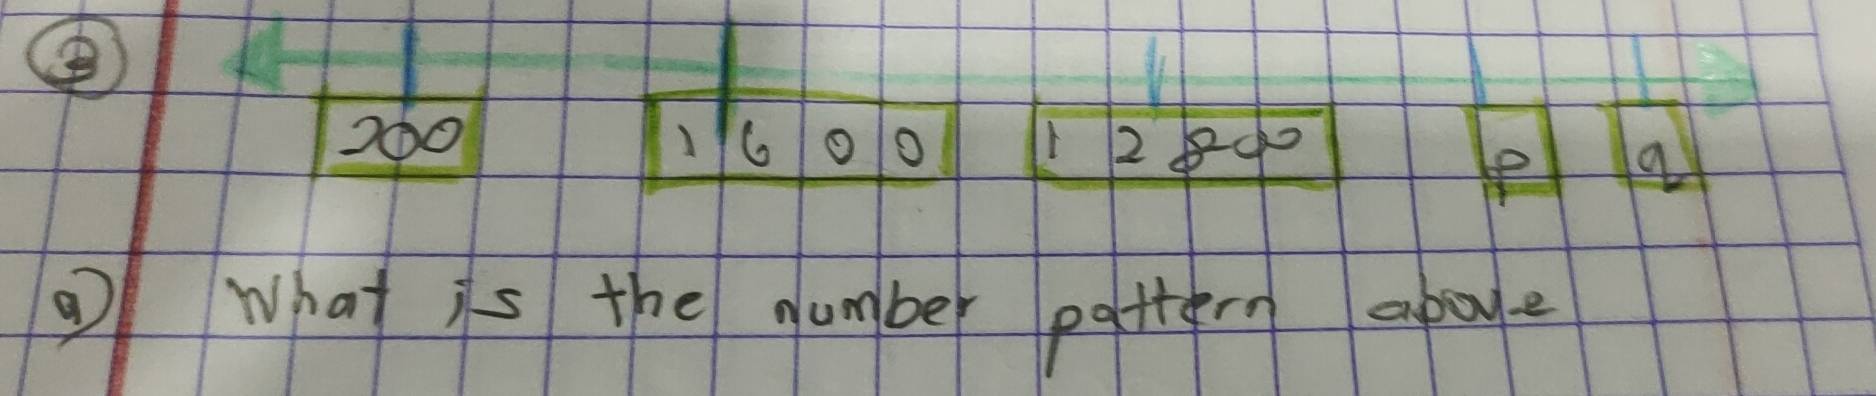 3 200 1600 12800 p q
a) What is the number pattern above